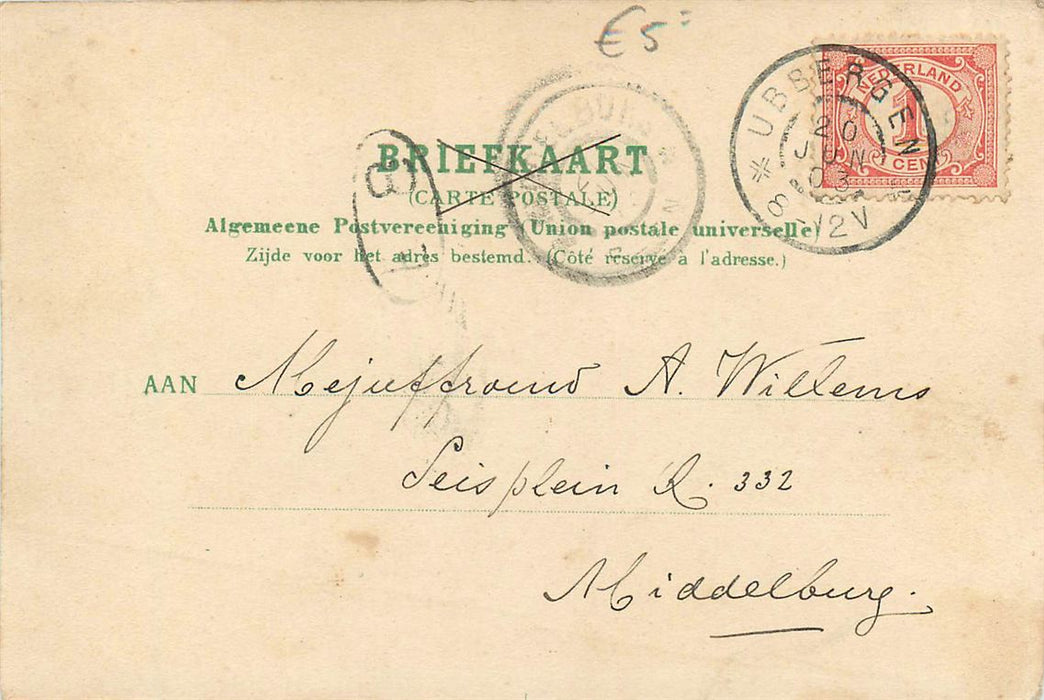 €5=
NEDERLAND
1
CENT
UBBERGEN
20
JUN
03
8-12V
BRIEFKAART
(CARTE POSTALE)
Algemeene Postvereeniging (Union postale universelle)
Zijde voor het adres bestemd. (Côté réservé à l'adresse.)
AAN Mejuffrouw A. Willems
Seisplein R. 332
Middelburg.